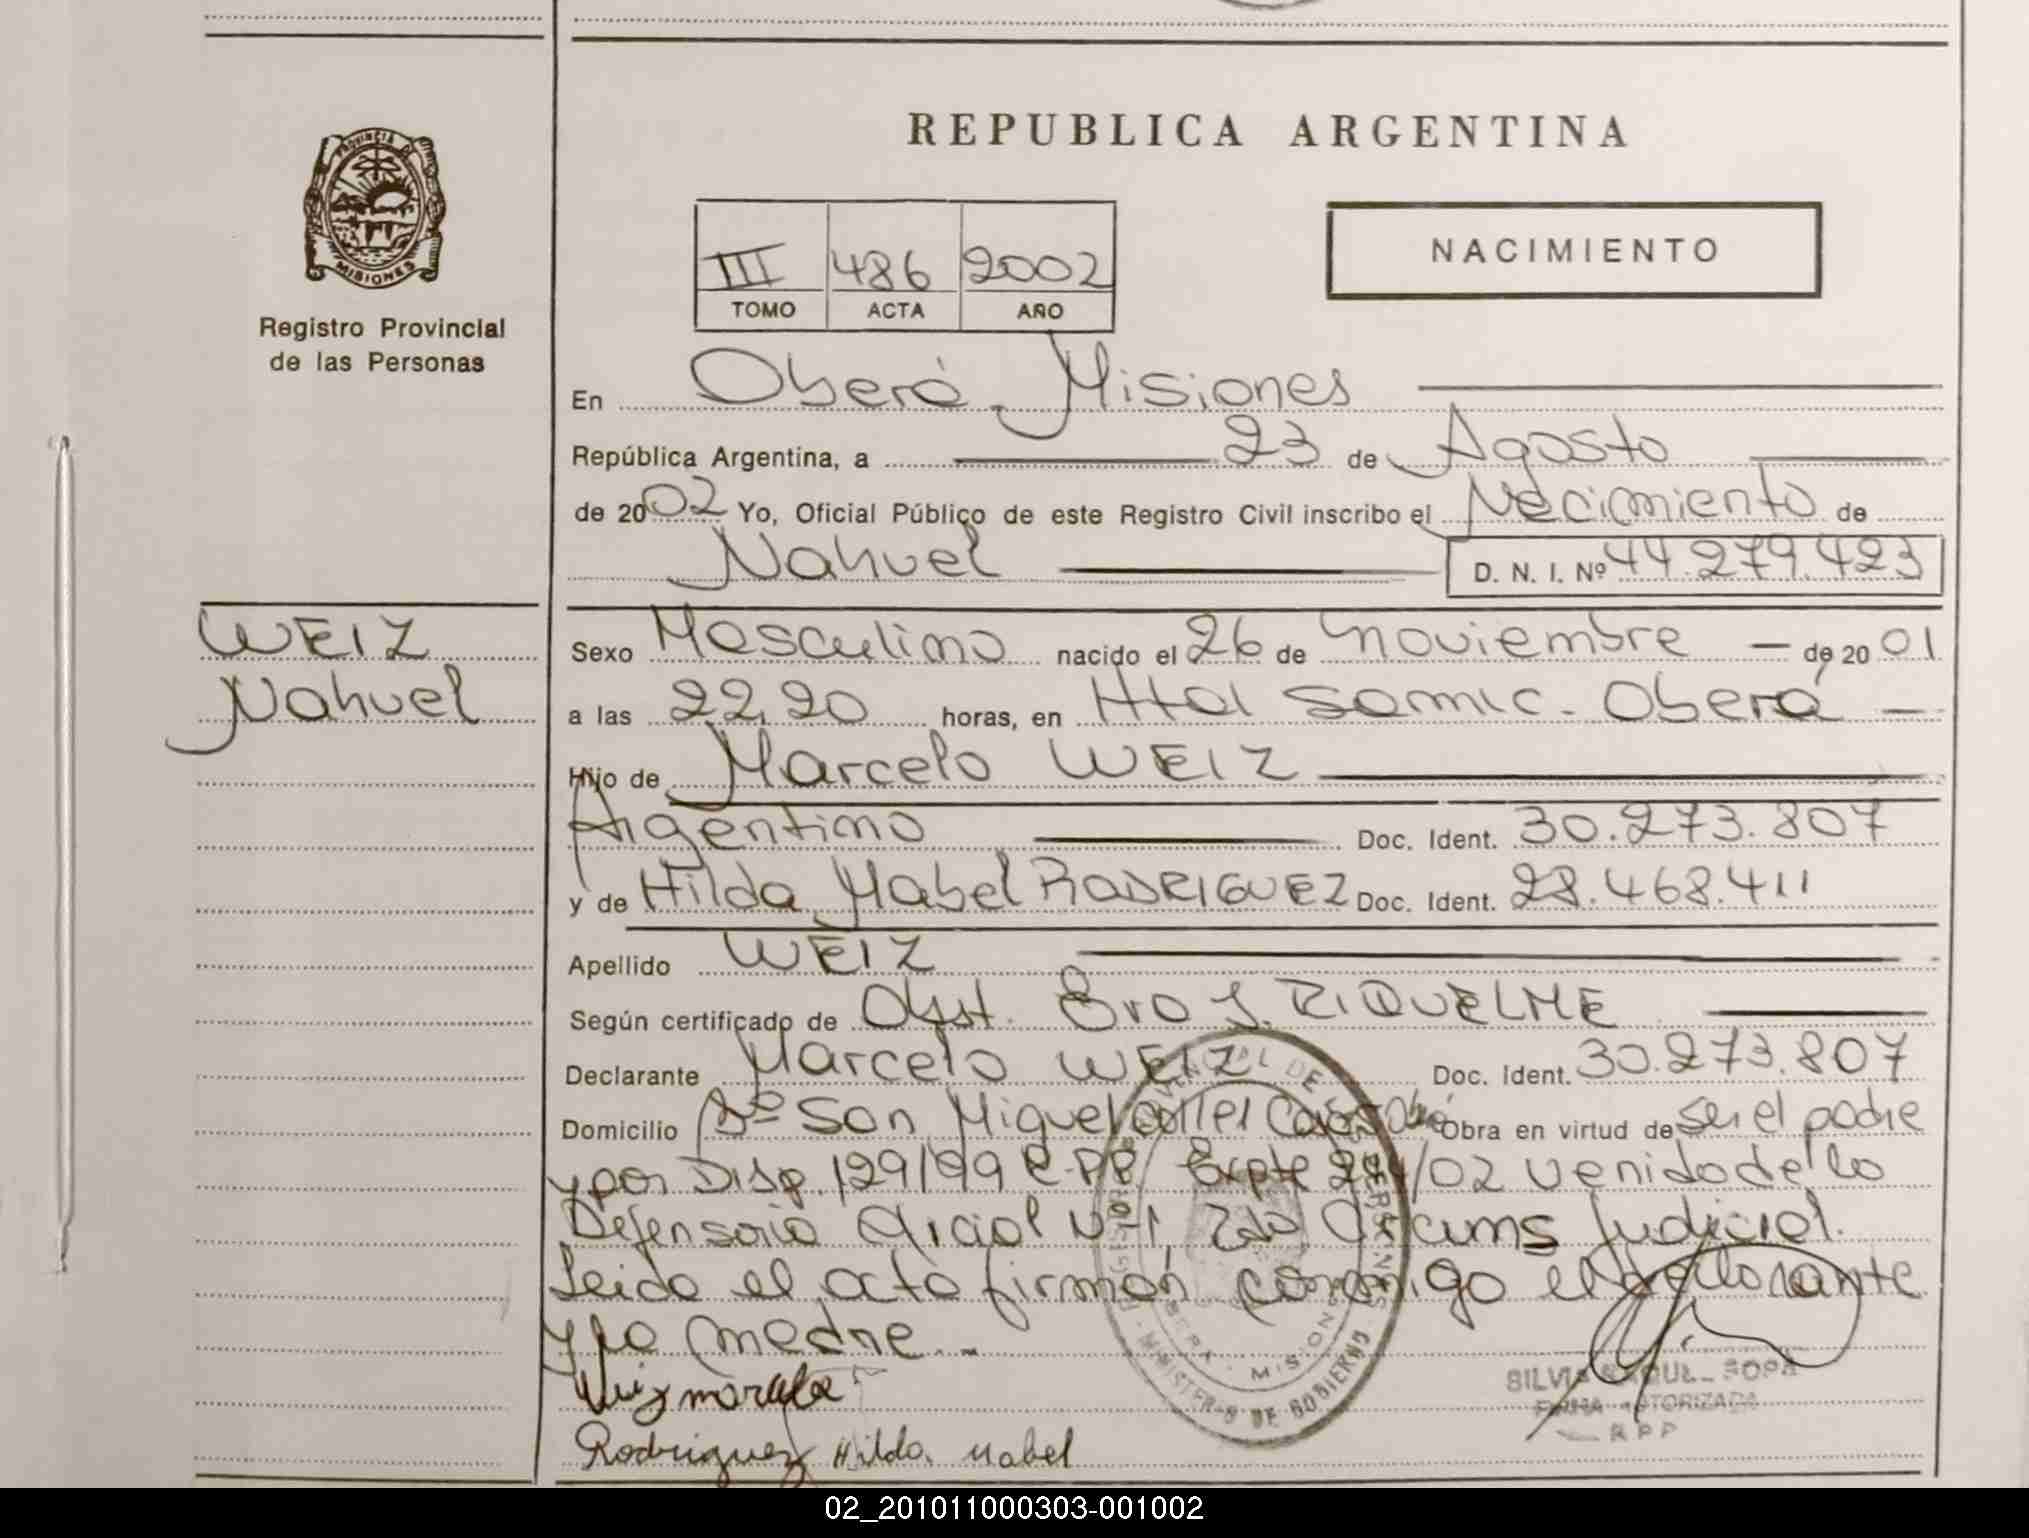 REPUBLICA ARGENTINA
PROVINCIA DE
MISIONES
Registro Provincial
de las Personas
III 486 2002
TOMO ACTA AÑO
NACIMIENTO
En Oberá - Misiones
República Argentina, a 23 de Agosto
de 2002 Yo, Oficial Público de este Registro Civil inscribo el Nacimiento de
Nahuel D. N. I. Nº 44.279.423
WEIZ
Nahuel
Sexo Masculino nacido el 26 de noviembre de 2001
a las 22,20 horas, en Htal Samic - Oberá
Hijo de Marcelo WEIZ
Argentino Doc. Ident. 30.273.807
y de Hilda Mabel RODRIGUEZ Doc. Ident. 28.468.411
Apellido WEIZ
Según certificado de Obst. J. RIQUELME
Declarante Marcelo WEIZ Doc. Ident. 30.273.807
Domicilio Bº San Miguel Obra en virtud de ser el padre
y por Disp. 129/99 R.P.P. Expte /02 venido de la
Defensoria Oficial Nº 1, 2da Circuns Judicial.
Leida el acta firman conmigo el declarante
y la madre..
Weiz
Rodriguez Hilda Mabel
MINISTERIO DE GOBIERNO
MISIONES
FIRMA AUTORIZADA
R P P
02_201011000303-001002